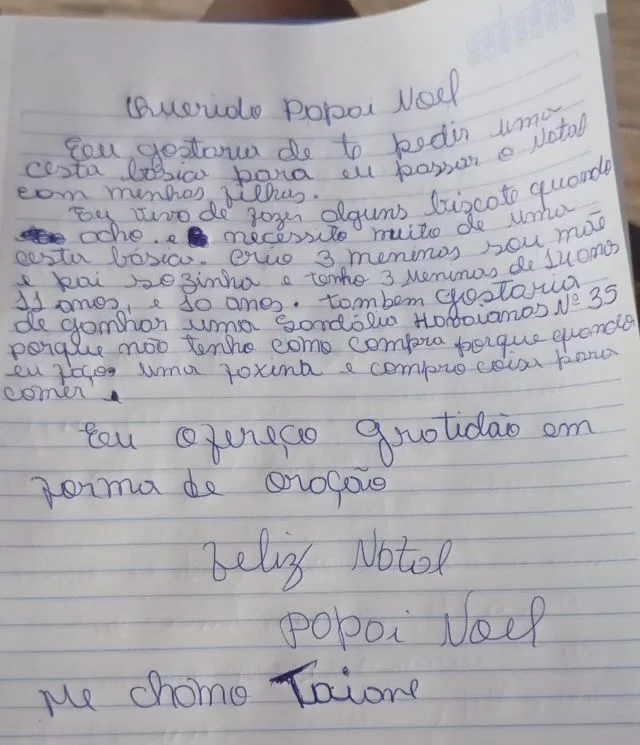 Querido Papai Noel
Eu gostaria de te pedir uma
cesta básica para eu passar o Natal
com minhas filhas.
Eu vivo de fazer alguns biscate quando
acho. e necessito muito de uma
cesta básica. crio 3 meninas sou mãe
e pai sozinha e tenho 3 meninas de 14 anos
11 anos, e 10 anos. também gostaria
de ganhar uma Sandália Havaianas Nº 35
porque não tenho como compra porque quando
eu faço uma faxina e compro coisa para
comer.
Eu ofereço gratidão em
forma de oração
Feliz Natal
Papai Noel
Me chamo Taiane